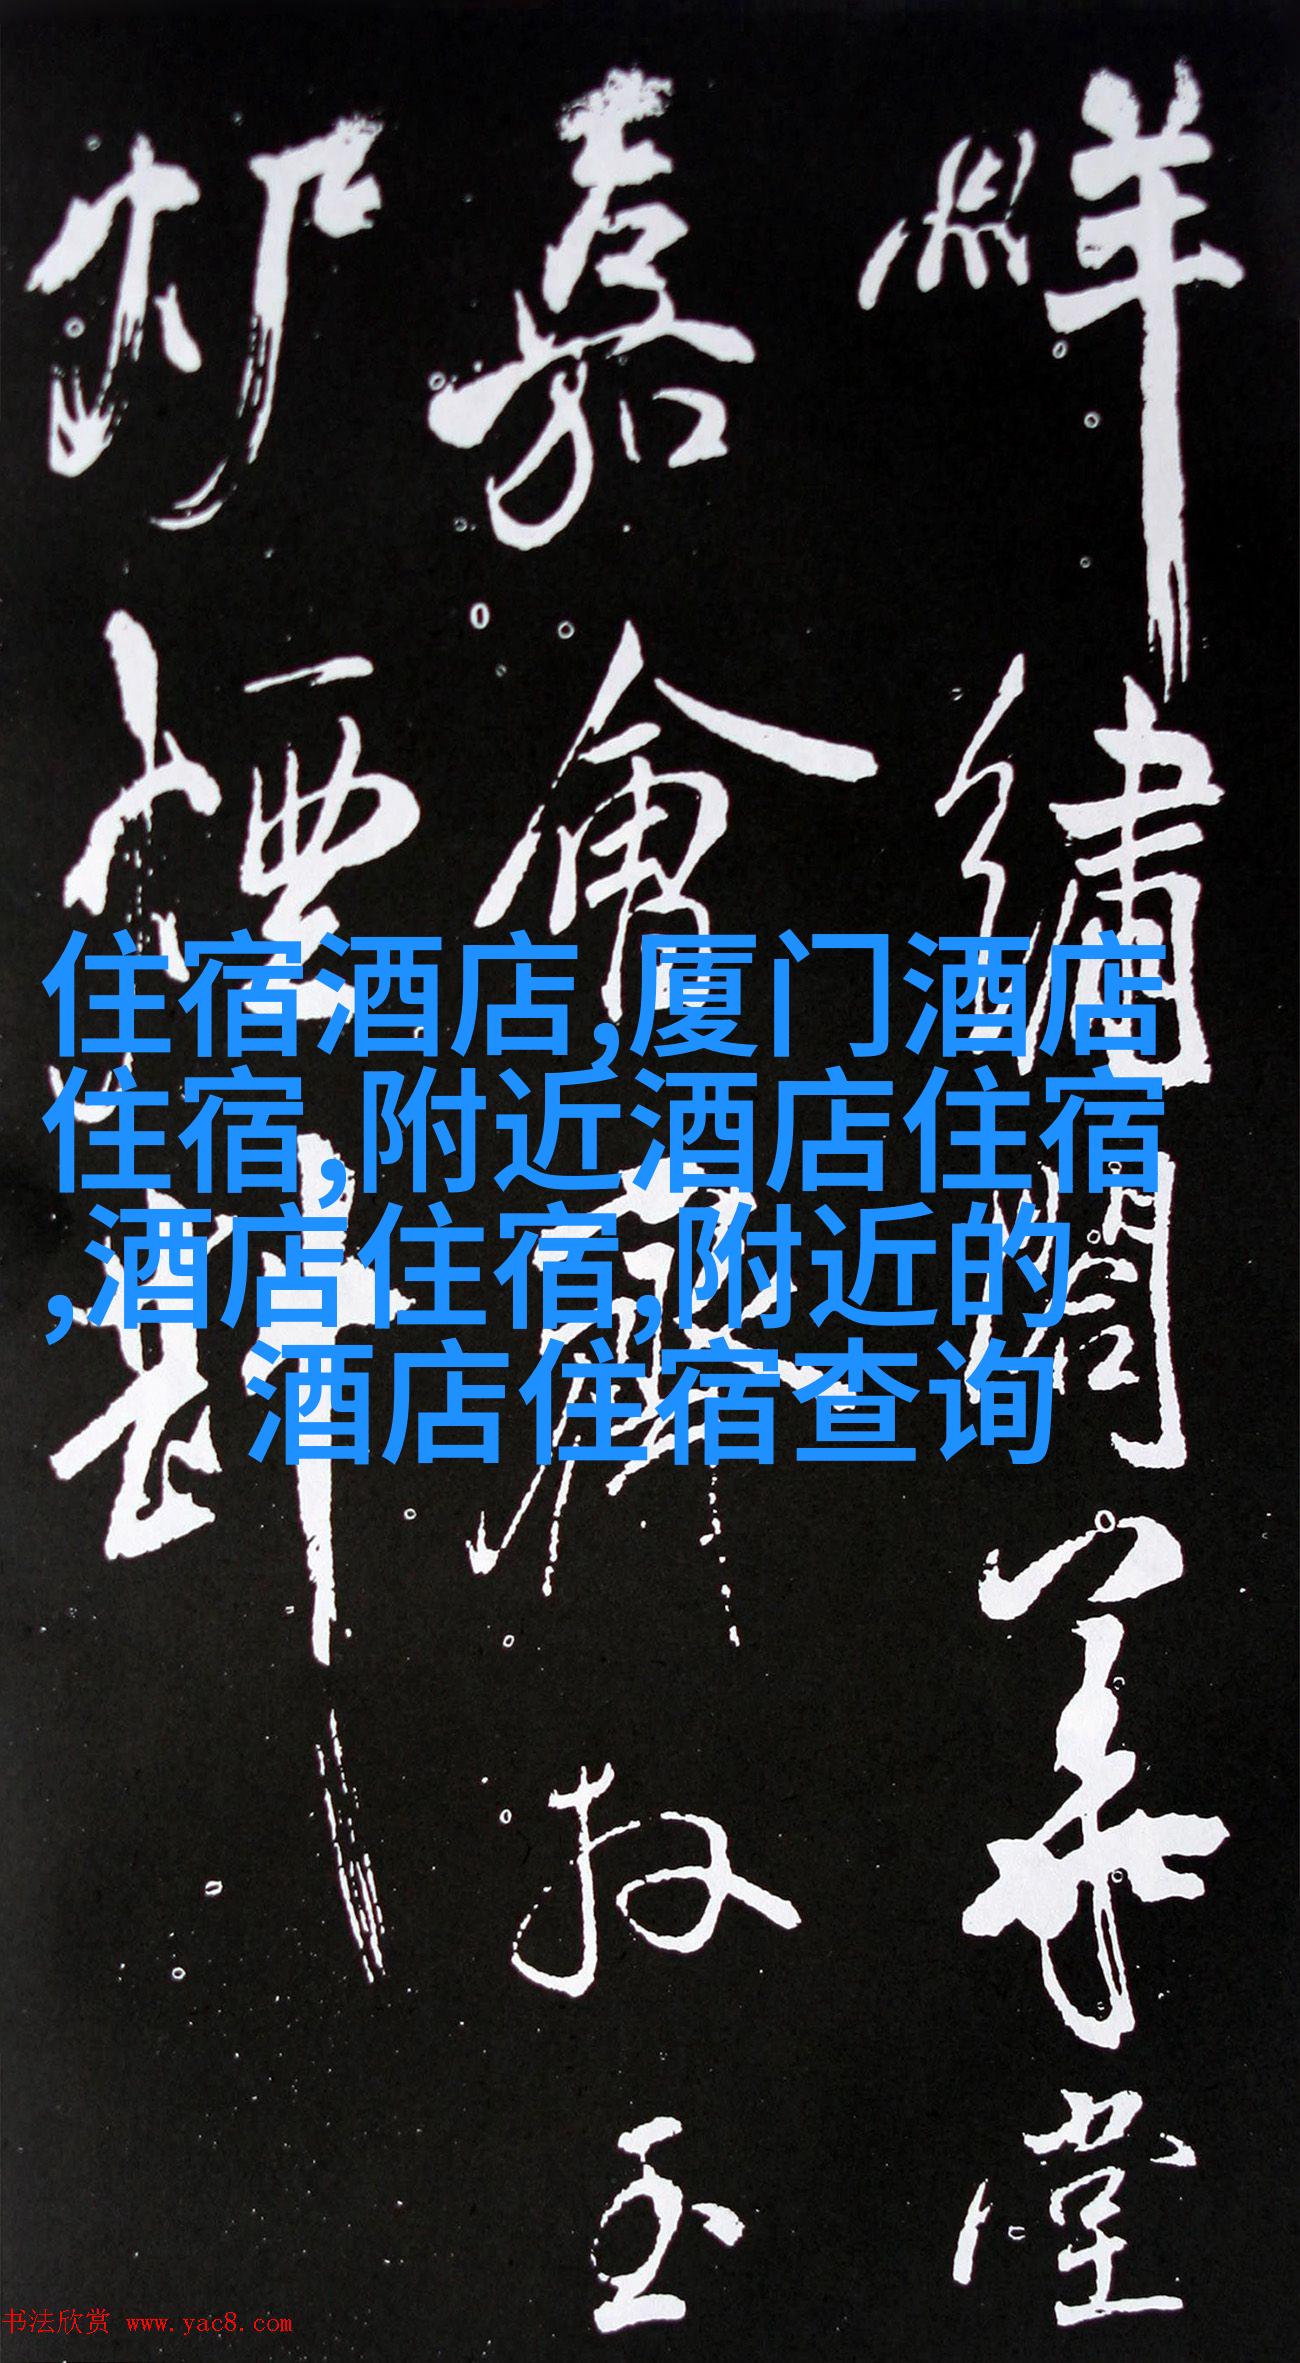 繡閣華堂
嘉會玉
斟
住宿酒店,厦门酒店
住宿,附近酒店住宿
,酒店住宿,附近的
酒店住宿查询
书法欣赏 www.yac8.com